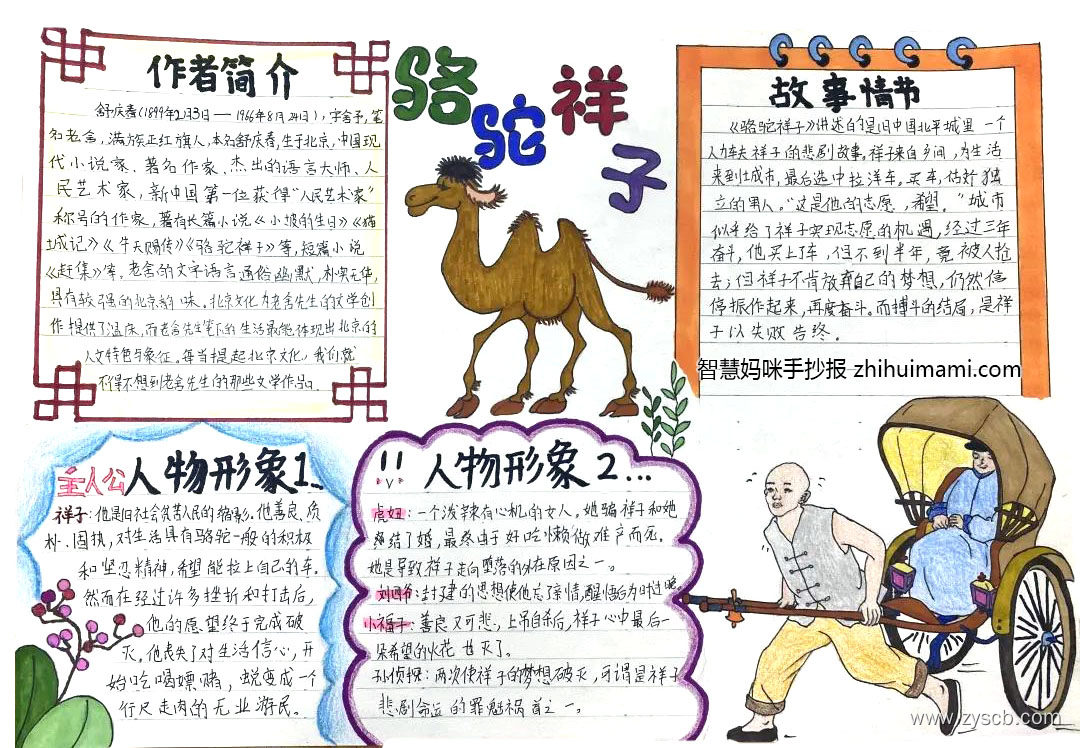 作者简介
舒庆春(1899年2月3日——1966年8月24日),字舍予,笔
名老舍,满族正红旗人,本名舒庆春,生于北京,中国现
代小说家、著名作家、杰出的语言大师、人
民艺术家,新中国第一位获得“人民艺术家”
称号的作家,著有长篇小说《小坡的生日》《猫
城记》《牛天赐传》《骆驼祥子》等,短篇小说
《赶集》等,老舍的文字语言通俗幽默,朴实无华,
具有较强的北京韵味。北京文化为老舍先生的文学创
作提供了温床,而老舍先生笔下的生活最能体现出北京的
人文特色与象征。每当提起北京文化,我们就
不得不想到老舍先生的那些文学作品。
骆驼祥子
故事情节
《骆驼祥子》讲述的是旧中国北平城里一个
人力车夫祥子的悲剧故事。祥子来自乡间,为生活
来到城市,最后选中拉洋车。买车,做好独
立的男人。“这是他的志愿,希望。”城市
似乎给了祥子实现志愿的机遇,经过三年
奋斗,他买上了车,但不到半年,竟被人抢
去;但祥子不肯放弃自己的梦想,仍然
停振作起来,再度奋斗。而搏斗的结局,是祥
子以失败告终。
智慧妈咪手抄报 zhihuimami.com
主人公人物形象1...
祥子:他是旧社会贫苦人民的缩影。他善良、质
朴、固执,对生活具有骆驼一般的积极
和坚忍精神,希望能拉上自己的车。
然而在经过许多挫折和打击后,
他的愿望终于完成破
灭,他丧失了对生活信心,开
始吃喝嫖赌,蜕变成一个
行尸走肉的无业游民。
人物形象2...
虎妞:一个泼辣有心机的女人,她骗祥子和她
结了婚,最终由于好吃懒做难产而死。
她是导致祥子走向堕落的外在原因之一。
刘四爷:封建的思想使他忘了亲情,醒悟后为时过晚
小福子:善良又可悲,上吊自杀后,祥子心中最后一
朵希望的火花也灭了。
孙侦探:两次使祥子的梦想破灭,可谓是祥子
悲剧命运的罪魁祸首之一。
www.zyscb.com